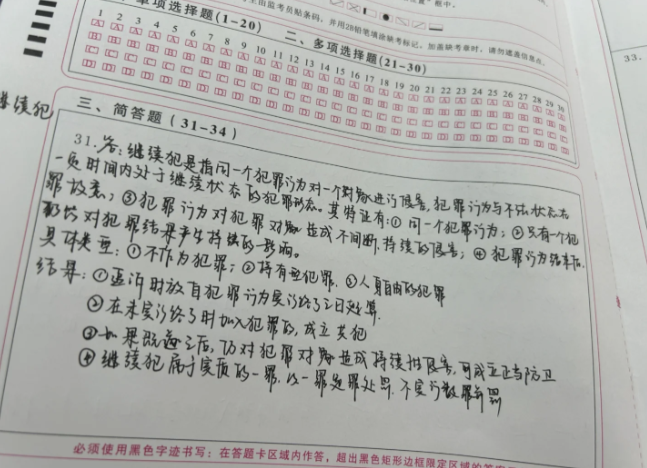 单项选择题(1-20)
二、多项选择题(21-30)
1 2 3 4 5 6 7 8 9 10 11 12 13 14 15 16 17 18 19 20 21 22 23 24 25 26 27 28 29 30
33.
继续犯
三、简答题(31-34)
31.答:继续犯是指同一个犯罪行为对一个对象进行侵害,犯罪行为与不法状态在
一定时间内处于继续状态的犯罪形态。其特征有:①同一个犯罪行为;②只有一个犯
罪故意;③犯罪行为对犯罪对象造成不间断、持续的侵害;④犯罪行为结束后,
仍然对犯罪结果产生持续的影响。
具体类型:①不作为犯罪;②持有型犯罪,③人身自由的犯罪
结果:①追诉时效自犯罪行为实行终了之日起算.
②在未实行终了时加入犯罪的,成立共犯
③如果既遂之后,仍对犯罪对象造成持续性侵害,可成立正当防卫
④继续犯属于实质的一罪,以一罪定罪处罚,不实行数罪并罚
必须使用黑色字迹书写:在答题卡区域内作答,超出黑色矩形边框限定区域的答案